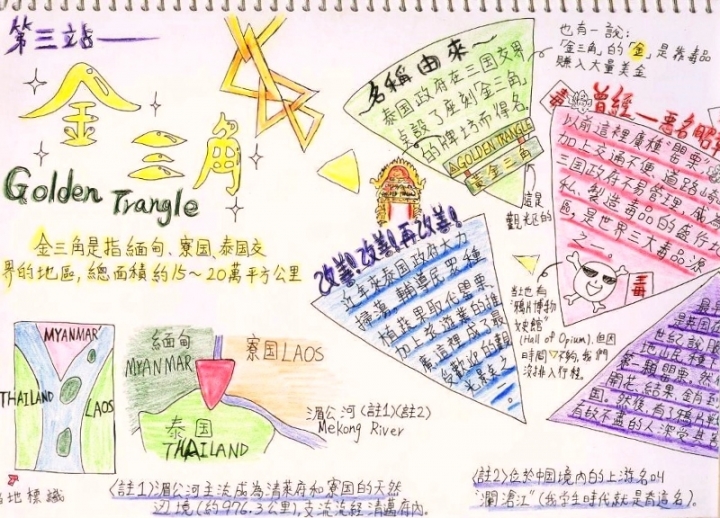 第三站——
金三角
Golden Trangle
金三角是指緬甸、寮国、泰国交
界的地區，總面積約15～20萬平方公里
名稱由來～
泰国政府在三国交界
点設了座刻「金三角」
的牌坊而得名。
GOLDEN TRANGLE
黃金三角
這是
觀光区的
也有一說：
「金三角」的「金」是靠毒品
賺入大量美金
毒
曾經一惡名昭
以前這裡廣種“罌粟”
加上交通不便、道路
三国政府不易管理，成
私、製造毒品的盛行
區，是世界三大毒品源
之一。
毒
改善！改善！再改善！
近年來泰国政府大力
掃蕩，輔導民眾種
植蔬果取代罌粟，
加上旅遊業的推
廣這裡成了最
受歡迎的觀
光景点之一。
当地也有
“鴉片博物
文史館”
(Hall of Opium)，但因
時間不夠，我們
沒排入行程。
MYANMAR
THAILAND
LAOS
緬甸
MYANMAR
寮国 LAOS
泰国
THAILAND
湄公河(註1)(註2)
Mekong River
地標
(註1)湄公河主流成為清萊府和寮国的天然
边境(約976.3公里)，支流流經清邁府內。
(註2)位於中国境內的上游名叫
“瀾滄江”(我学生時代就是背這名)。
最
是泰
世紀
地山民種
第一顆罌粟，然
開花、結果，
国。然後，有了鴉片戰
有故不盡的人深受其